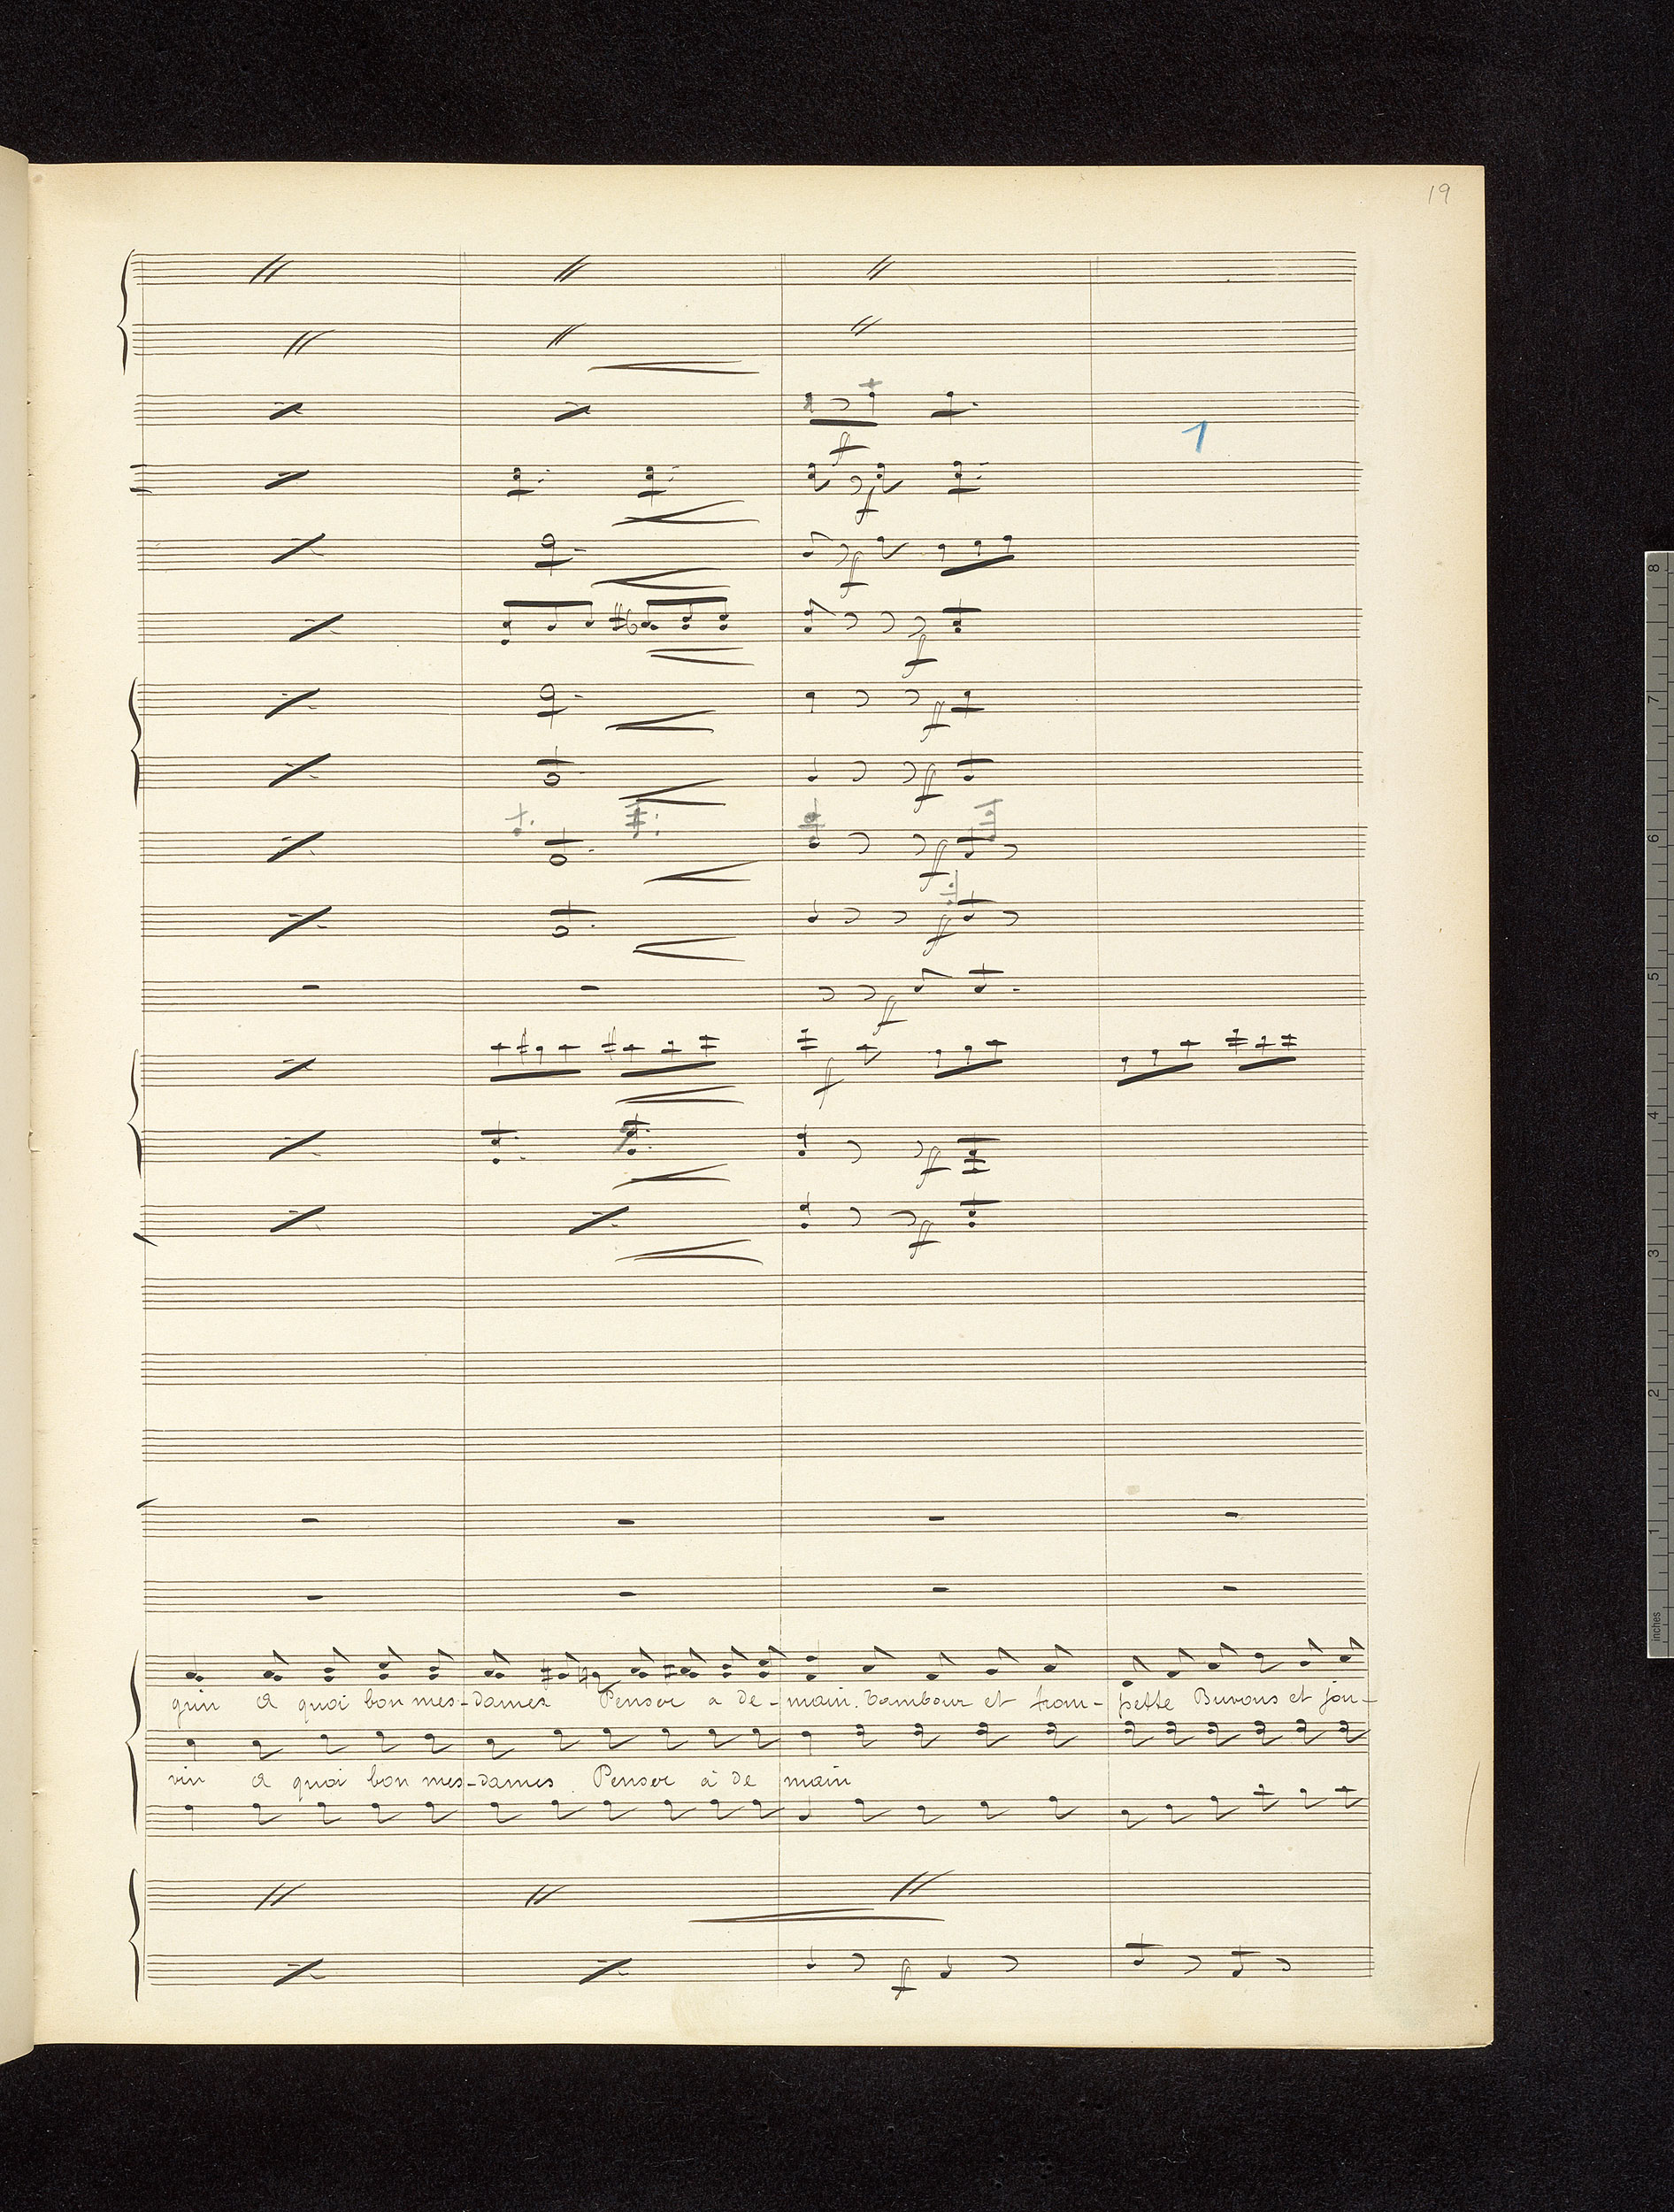 19
1
f
f
f
f
f
f
f
f
f
f
f
f
quin A quoi bon mes-dames Penser a de-main. Tambour et trom-pette Buvons et jou-
vin A quoi bon mes-dames. Penser à de main
f
8
7
6
5
4
3
2
1
inches